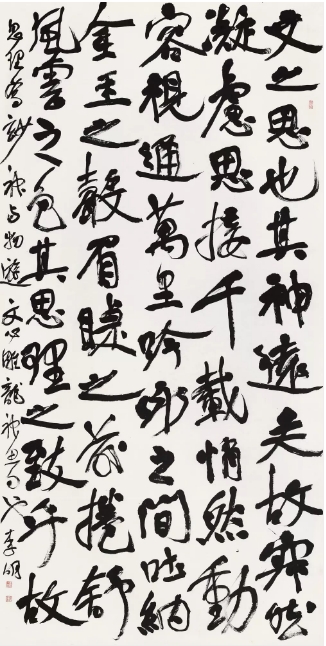 文之思也其神遠矣故寂然
凝慮思接千載悄然動
容視通萬里吟詠之間吐納
金玉之聲眉睫之前捲舒
風雲之色其思理之致乎故
思理為妙神与物遊文心雕龍神思句李明